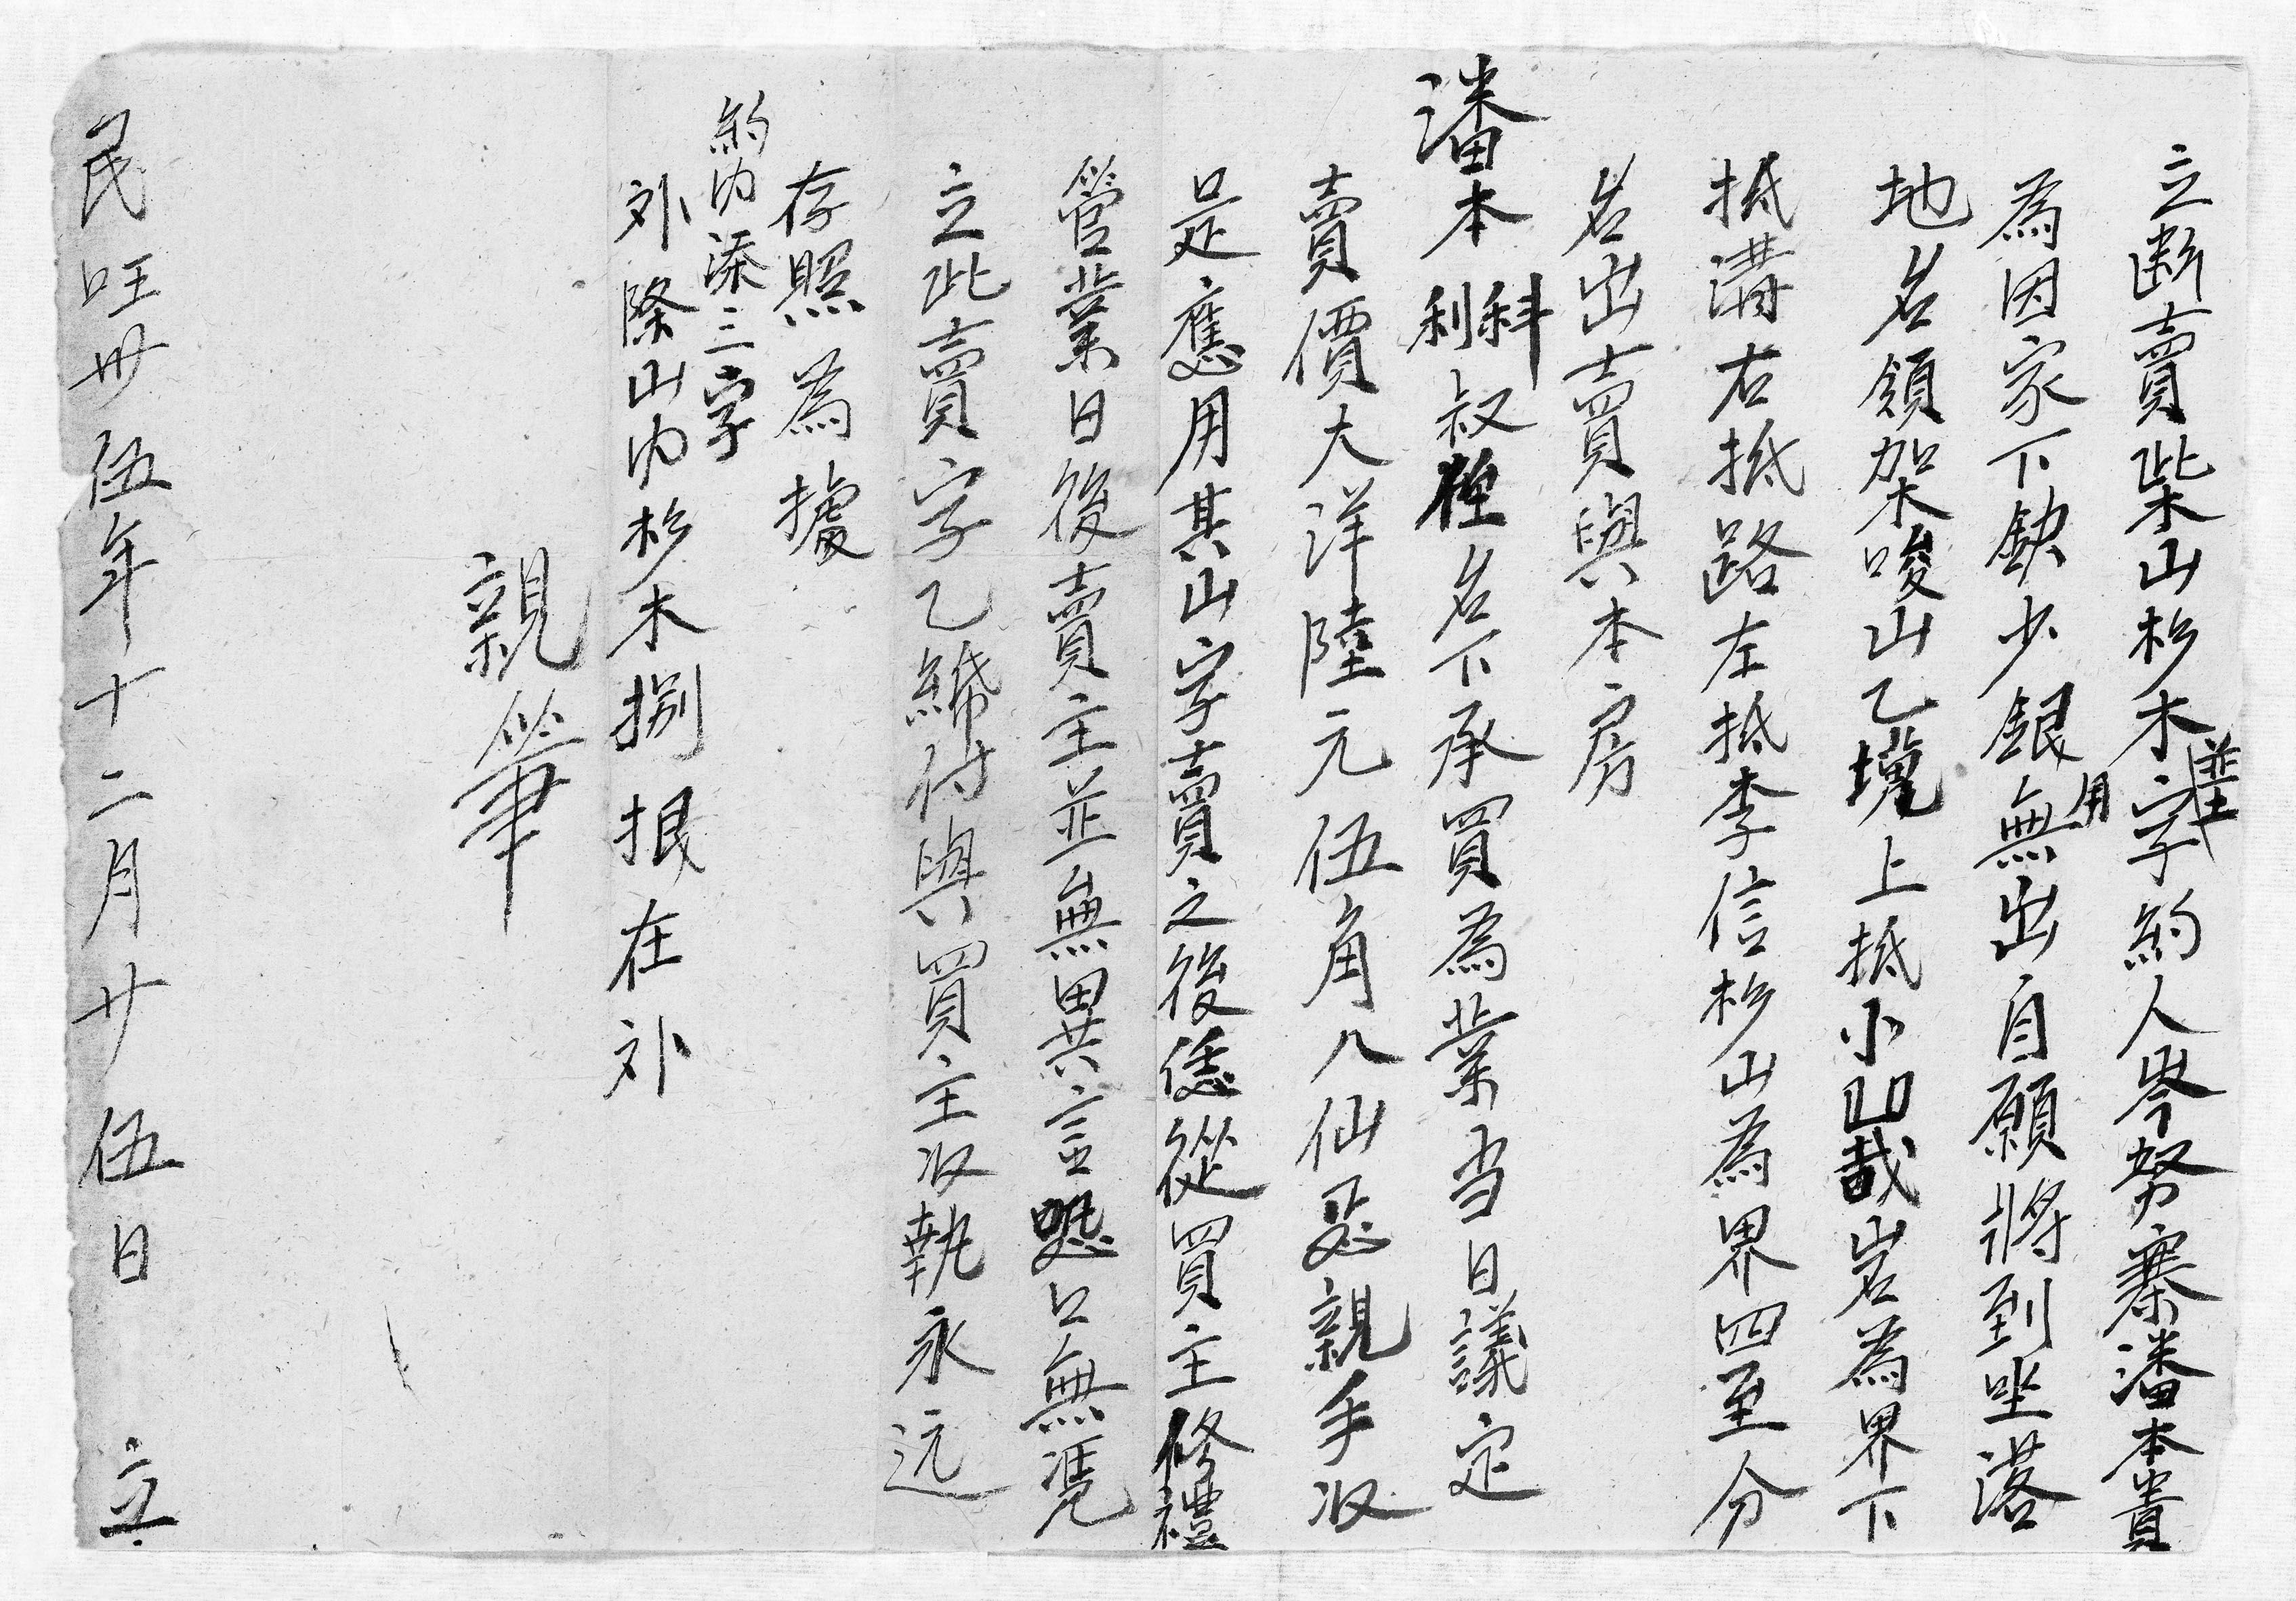 立断賣柴山杉木並土字約人岑努寨潘本貴
為因家下缺少銀用無出自願將到坐落
地名領架唆山乙塊上抵小凹哉岩為界下
抵溝右抵路左抵李信杉山為界四至分
名出賣與本房
潘本科利叔侄名下承買為業当日議定
賣價大洋陸元伍角八仙正親手収
足應用其山字賣之後恁從買主修禮
管業日後賣主並無異言恐口無憑
立此賣字乙紙付與買主収執永远
存照為據
約内添三字
外除山内杉木捌根在外
親筆
民旺卅伍年十二月廿伍日 立